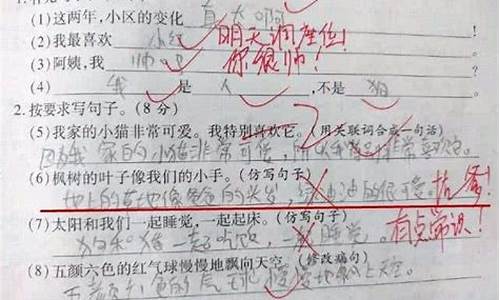 (1)这两年,小区的变化 真大啊
(2)我最喜欢 小红 明天调座位!
(3)阿姨,我 帅吧 你很帅!
(4) 我 是 人 ,不是 狗
2.按要求写句子。(8 分)
(5)我家的小猫非常可爱。我特别喜欢它。(用关联词合成一句话)
因为我家的小猫非常可爱,所以我 非常喜欢它。
(6)枫树的叶子像我们的小手。(仿写句子)
地上的草地像爸爸的头发,绿油油的很 。
(7)太阳和我们一起睡觉,一起起床。(仿写句子)
狗和猪一起吃饭,一起睡觉。 有点常识!
(8)五颜六色的红气球慢慢地飘向天空。(修改病句)
五颜六色的气球慢慢地飘上天空。